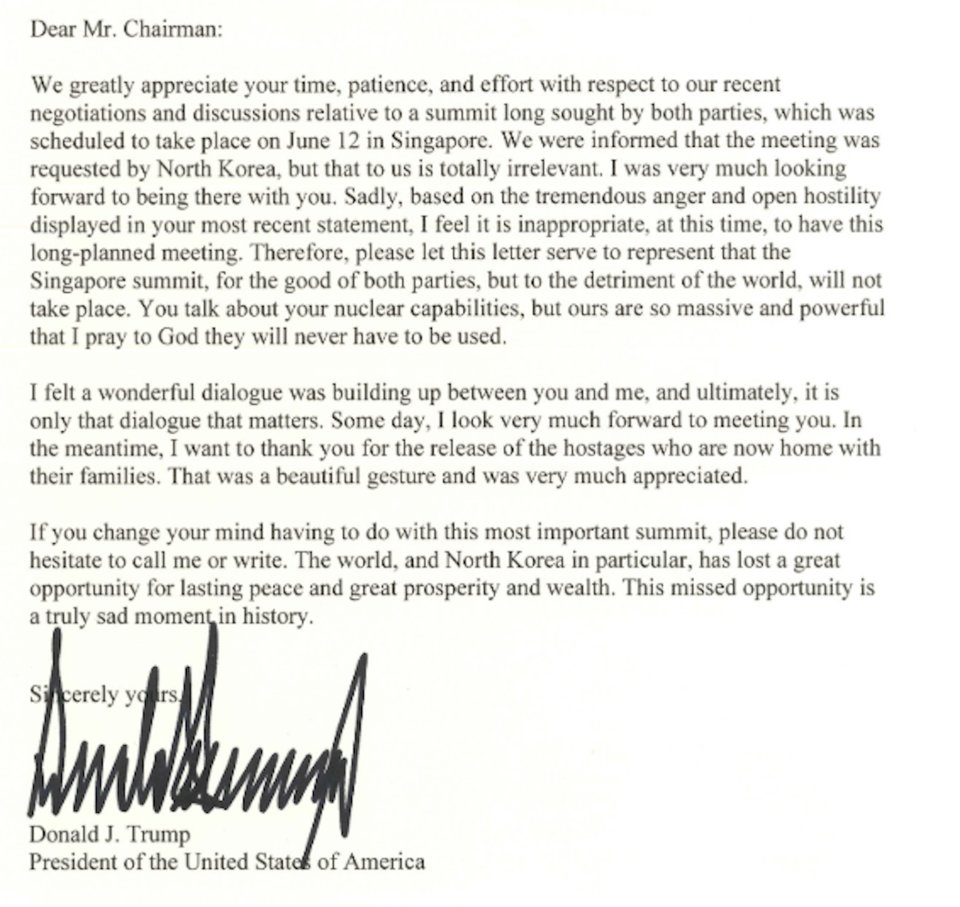 Dear Mr. Chairman:
We greatly appreciate your time, patience, and effort with respect to our recent
negotiations and discussions relative to a summit long sought by both parties, which was
scheduled to take place on June 12 in Singapore. We were informed that the meeting was
requested by North Korea, but that to us is totally irrelevant. I was very much looking
forward to being there with you. Sadly, based on the tremendous anger and open hostility
displayed in your most recent statement, I feel it is inappropriate, at this time, to have this
long-planned meeting. Therefore, please let this letter serve to represent that the
Singapore summit, for the good of both parties, but to the detriment of the world, will not
take place. You talk about your nuclear capabilities, but ours are so massive and powerful
that I pray to God they will never have to be used.
I felt a wonderful dialogue was building up between you and me, and ultimately, it is
only that dialogue that matters. Some day, I look very much forward to meeting you. In
the meantime, I want to thank you for the release of the hostages who are now home with
their families. That was a beautiful gesture and was very much appreciated.
If you change your mind having to do with this most important summit, please do not
hesitate to call me or write. The world, and North Korea in particular, has lost a great
opportunity for lasting peace and great prosperity and wealth. This missed opportunity is
a truly sad moment in history.
Sincerely yours,
Donald J. Trump
President of the United States of America